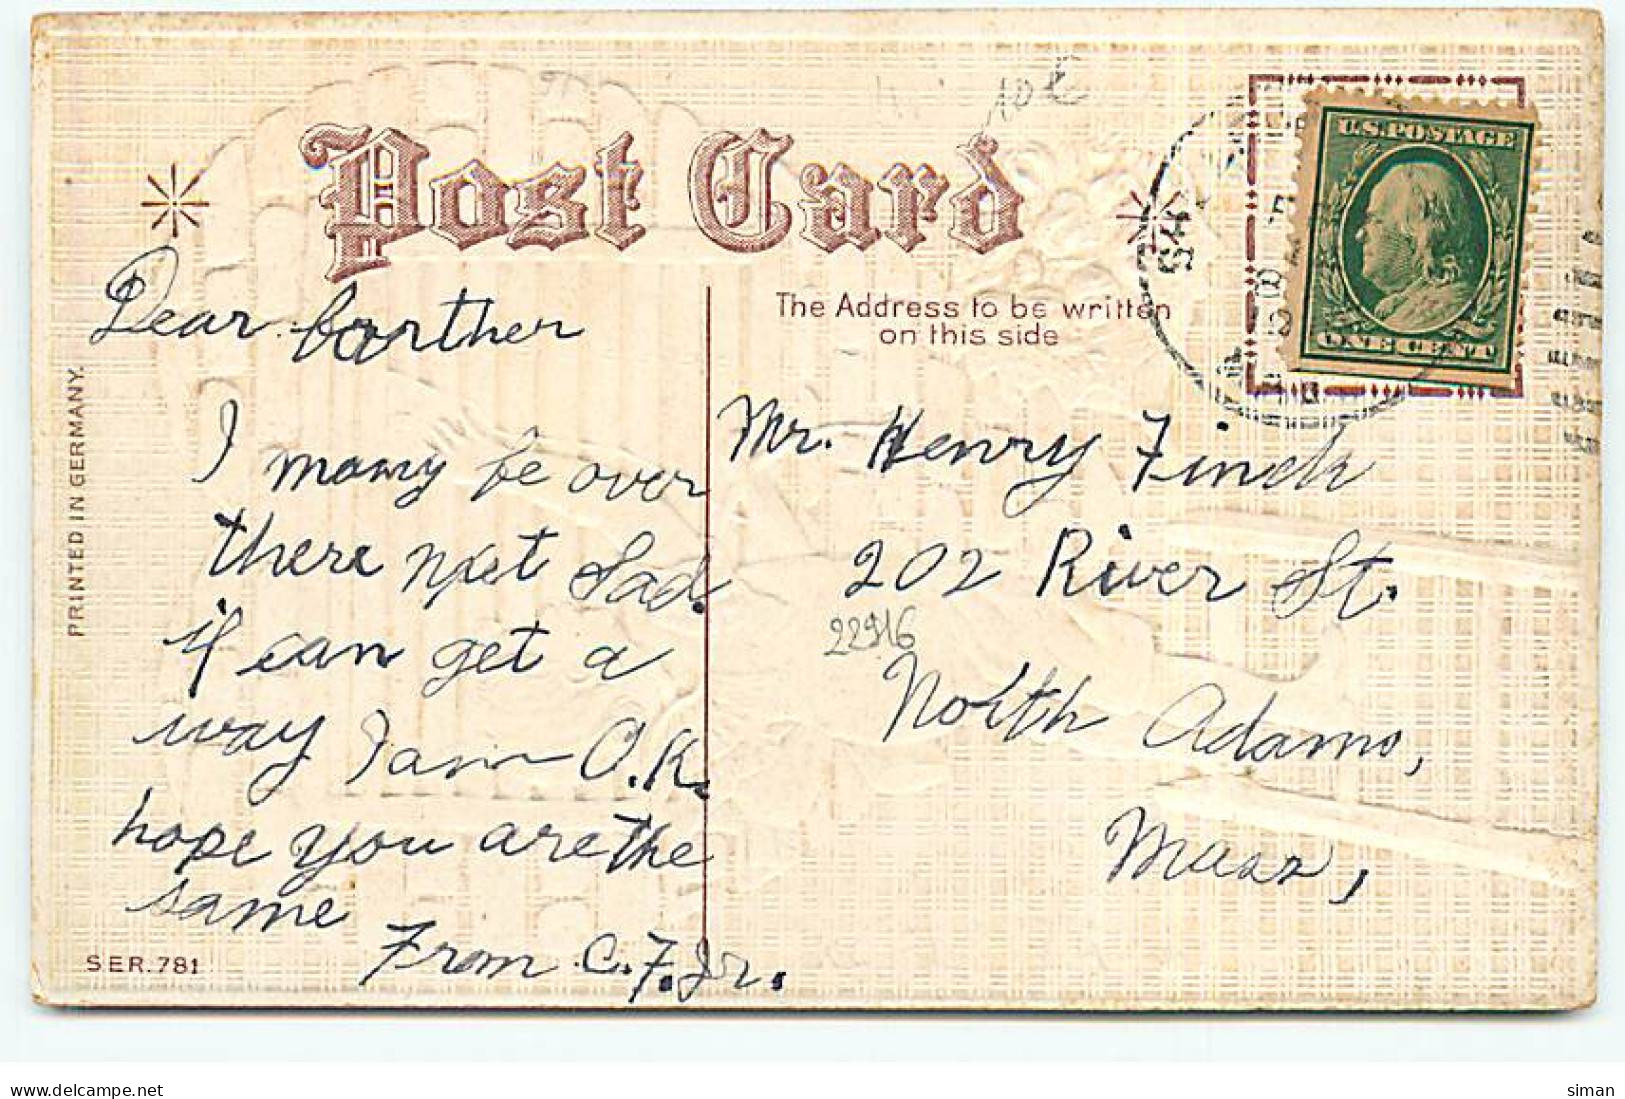 Post Card
The Address to be written
on this side
PRINTED IN GERMANY.
SER.781
U.S. POSTAGE
ONE CENT
10 €
22916
Dear barther
I mamy be over
there next Sad.
if can get a
way I am O.K.
hope you are the
same
From C.F. Jr.
Mr. Henry Finch
202 River St.
North Adams,
Mass,
www.delcampe.net
siman